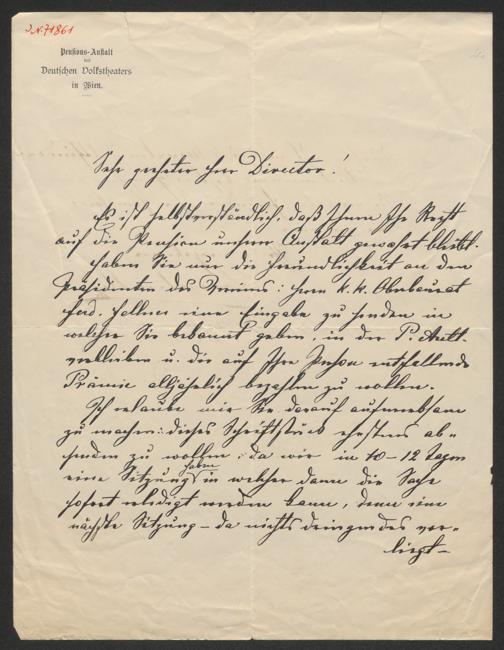 J.N. 71861
Pensions-Anstalt
des
Deutschen Volkstheaters
in Wien.
Sehr geehrter Herr Director!
Es ist selbstverständlich, daß Ihnen Ihr Recht
auf die Pension unserer Anstalt gewahrt bleibt.
Haben Sie nur die Freundlichkeit an den
Präsidenten des Vereins: Herrn K. K. Oberbaurat
Ferd. Fellner eine Eingabe zu senden in
welcher Sie bekannt geben, in der P. Anst.
verbleiben u. die auf Ihre Person entfallende
Prämie alljährlich bezahlen zu wollen.
Ich erlaube mir Sie darauf aufmerksam
zu machen: dieses Schriftstück ehestens ab-
senden zu wollen, da wir in 10-12 Tagen
eine Sitzung haben in welcher dann die Sache
sofort erledigt werden kann, denn eine
nächste Sitzung – da nichts dringendes vor-
liegt –